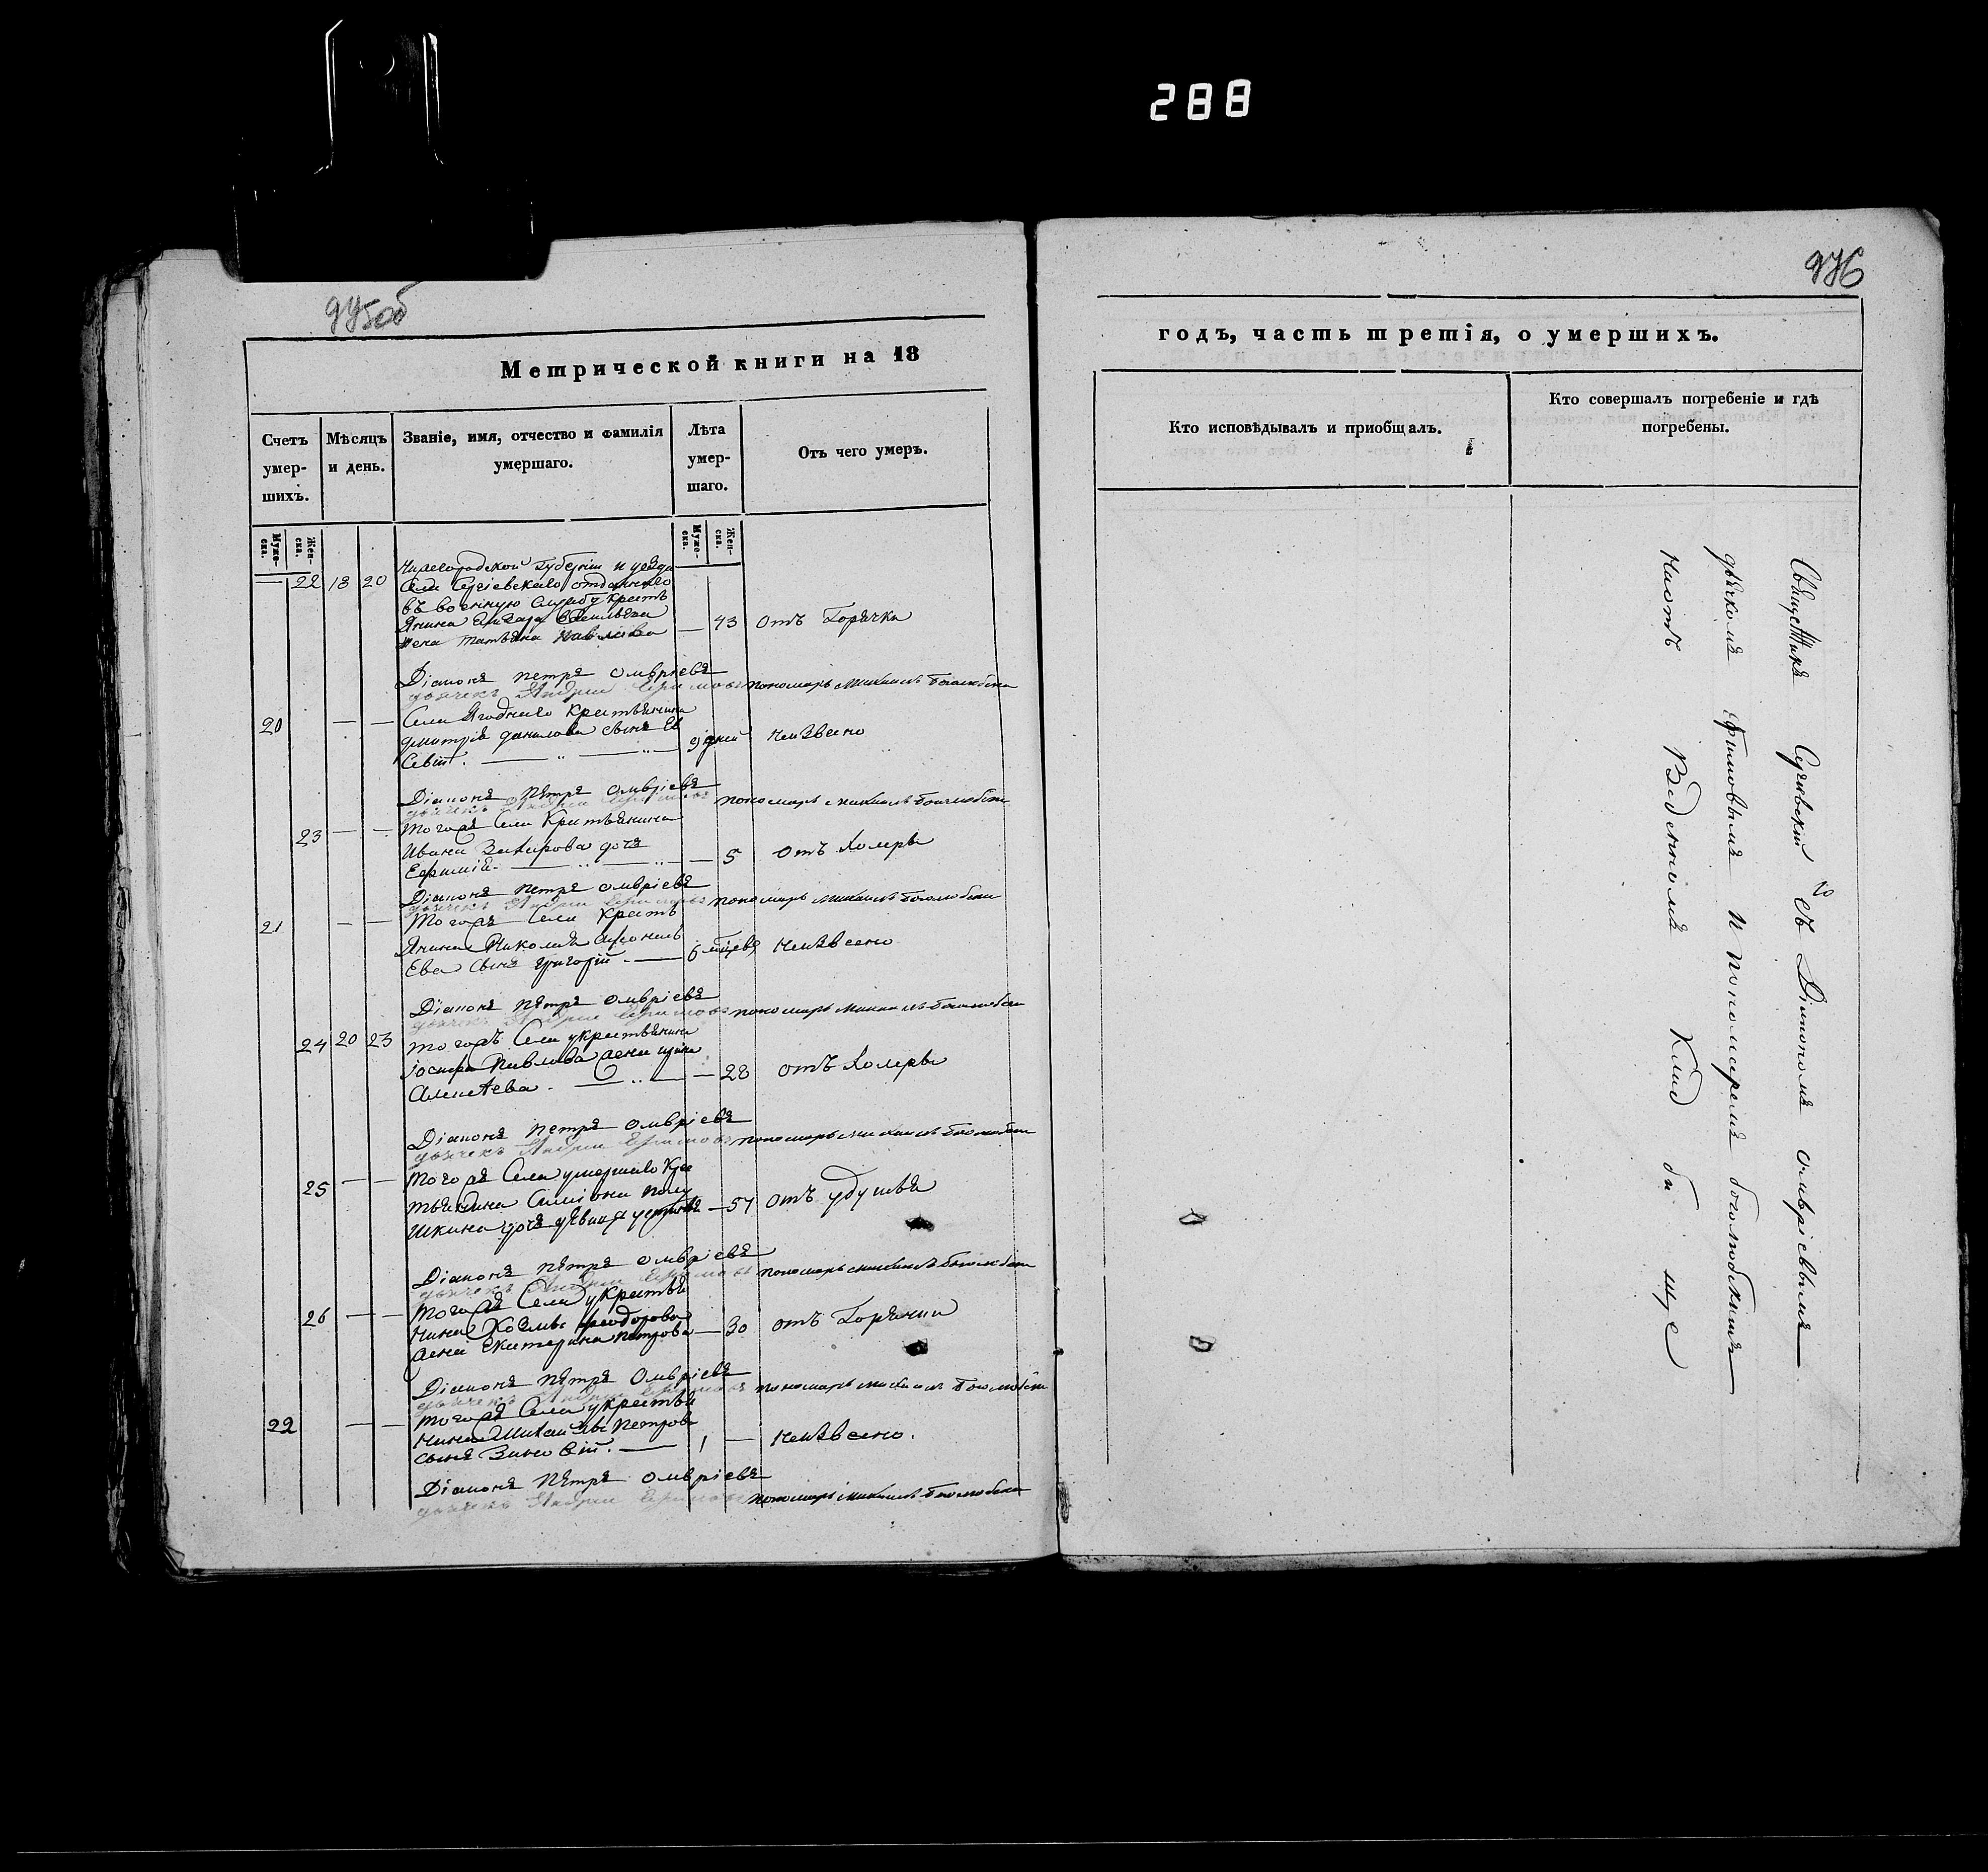 288
975об
Метрической книги на 18
Счетъ умер-шихъ.
Мѣсяцъ и день.
Званіе, имя, отчество и фамилія умершаго.
Лѣта умер-шаго.
Отъ чего умеръ.
Муже-ска.
Жен-ска.
Муже-ска.
Жен-ска.
— 22 18 20 Нижегородской губерніи и уезда
Села Сергіевскаго отданнаго
въ военную службу крестъ
янина Василъева
жена татъяна — 43 Отъ Горячки
Діаконъ петръ Омвріевъ
дьячекъ Андрей Ефимовъ пономарь Михаилъ Боголюбскій
20 — — Села Ягоднаго крестьянина
дмитрія данилова сынъ Ев
Севій. — „ — „ — 9 дней Неизвесно
Діаконъ Петръ Омвріевъ
дьячекъ Андрей Ефимовъ пономарь михаилъ Боголюбскій
23 — — Того жъ Села Крестьянина
Ивана Захарова дочъ
Ефимія. — „ — „ — — 5 Отъ Холеры
Діаконъ Петръ Омвріевъ
дьячекъ Андрей Ефимовъ пономарь михаилъ боголюбскій
21 — — Того жъ Села Крестъ
янина Николая
Ева Сынъ григорій. — 6 мцевъ Неизвесно
Діаконъ Петръ Омвріевъ
дьячекъ Андрей Ефимовъ пономарь михаилъ Боголюбскій
24 20 23 того жъ Села у крестьянина
іосифа Павлова жена
Алексѣева. — „ — — 28 отъ Холеры
Діаконъ Петръ Омвріевъ
дьячекъ Андрей Ефимовъ пономарь михаилъ боголюбскій
25 — — того жъ Села умершаго Крес
тьянина Симіона
шкина дочъ дѣвица — 57 отъ удушья
Діаконъ пѣтръ Омвріевъ
дьячекъ Андрей Ефимовъ пономарь михаилъ боголюбскій
26 — — того жъ Села у крестья
нина Козмы Феодорова
жена Екатерина петрова — 30 отъ Горячки
Діаконъ пѣтръ Омвріевъ
дьячекъ Андрей Ефимовъ пономарь михаилъ Боголюбскій
22 — — того жъ Села у крестья
нина Михаилы Петрова
сынъ Зиновій. — 1 — Неизвесно.
Діаконъ Пѣтръ Омвріевъ
дьячекъ Андрей Ефимовъ пономарь михаилъ боголюбскій
976
годъ, часть третія, о умершихъ.
Кто исповѣдывалъ и приобщалъ.
Кто совершалъ погребеніе и гдѣ погребены.
Священникъ Сергіевскій съ Діакономъ Омвріевымъ
дьячкомъ ефимовымъ и пономаремъ боголюбскимъ
на отъ веденномъ Клад би ще